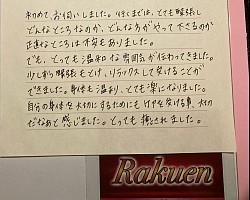 初めて、お伺いしました。行くまでは、とても緊張し
どんなところなのか、どんな方がやって下さるのか
正直なところは不安もありました。
でも、とっても温和な雰囲気が伝わってきました。
少しずつ緊張もとけ、リラックスして受けることが
できました。身体も温まり、とても楽になりました。
自分の身体を大切にするためにもケアを受ける事、大切
だなあと感じました。とっても癒されました。
Rakuen